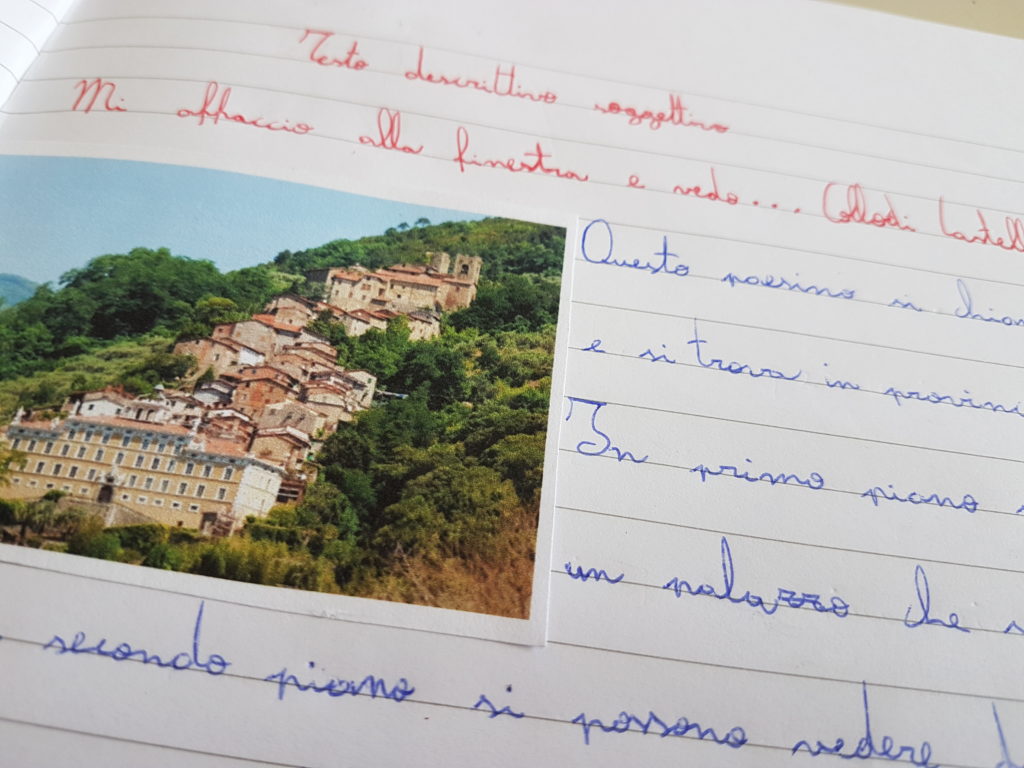 Testo descrittivo soggettivo
Mi affaccio alla finestra e vedo... Collodi Castell
Questo paesino si chiam
e si trova in provinci
In primo piano s
un palazzo che s
secondo piano si possono vedere d